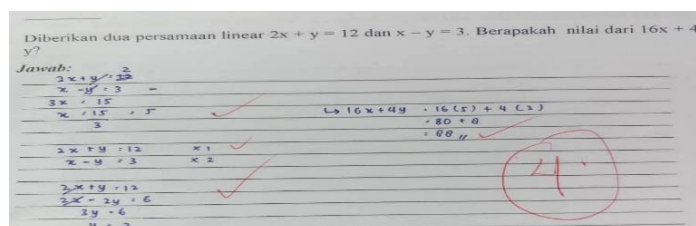 Diberikan dua persamaan linear 2x + y = 12 dan x − y = 3. Berapakah nilai dari 16x + 4
y?
Jawab:
2x + y = 12
x - y = 3 -
3x = 15
x = 15 = 5
3
↳ 16x + 4y = 16(5) + 4(2)
= 80 + 8
= 88 //
2x + y = 12 x 1
x - y = 3 x 2
2x + y = 12
2x - 2y = 6
3y = 6
4